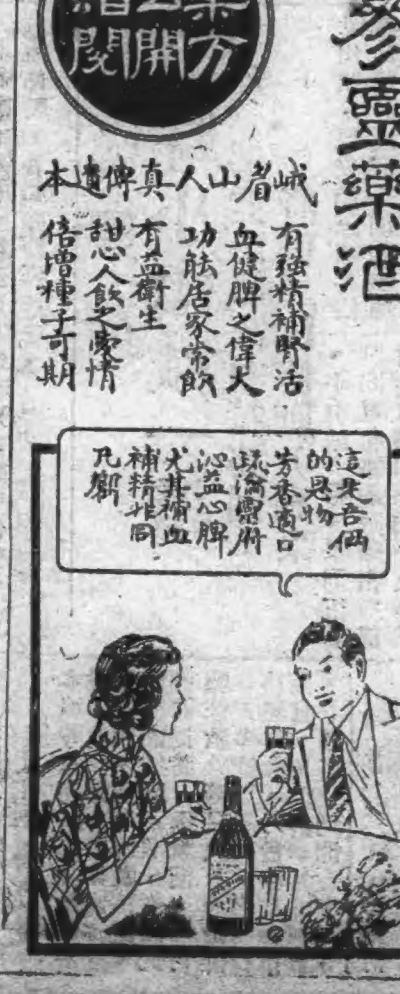 參靈藥酒
藥方
公開
閱
峨眉山人真傳遺本
有強精補腎活
血健脾之偉大
功能居家常飲
有益衛生
甜心人飲之愛情
倍增種子可期
這是吾倆
的恩物
芳香適口
疏瀹靈府
沁益心脾
尤其補血
補精非同
凡響